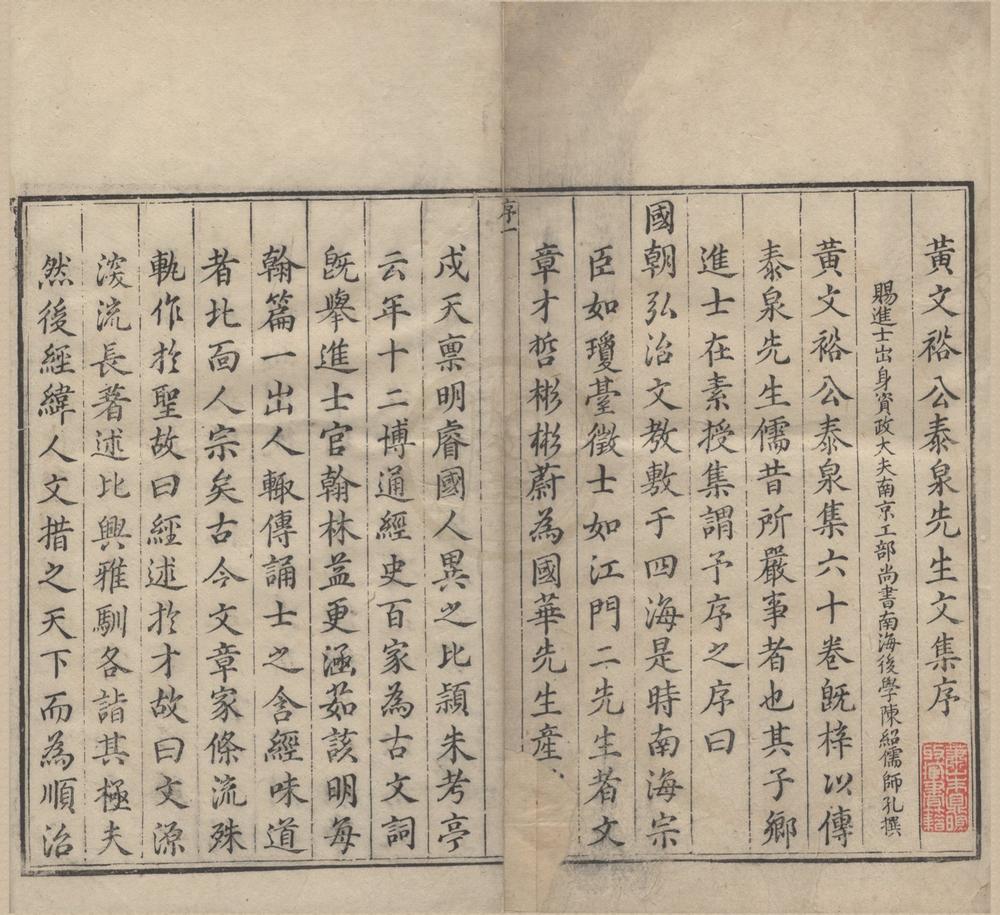 黃文裕公泰泉先生文集序
賜進士出身資政大夫南京工部尚書南海後學陳紹儒師孔撰
黃文裕公泰泉集六十卷旣梓以傳
泰泉先生儒昔所嚴事者也其子鄉
進士在素授集謂予序之序曰
國朝弘治文教敷于四海是時南海宗
臣如瓊臺徵士如江門二先生者文
章才哲彬彬蔚為國華先生產
序一
戍天禀明睿國人異之比頴朱考亭
云年十二博通經史百家為古文詞
旣舉進士官翰林益更涵茹該明每
翰篇一出人輙傳誦士之含經味道
者北面人宗矣古今文章家條流殊
軌作扵聖故曰經述扵才故曰文源
浚流長著述比興雅馴各詣其極夫
然後經緯人文措之天下而為順治